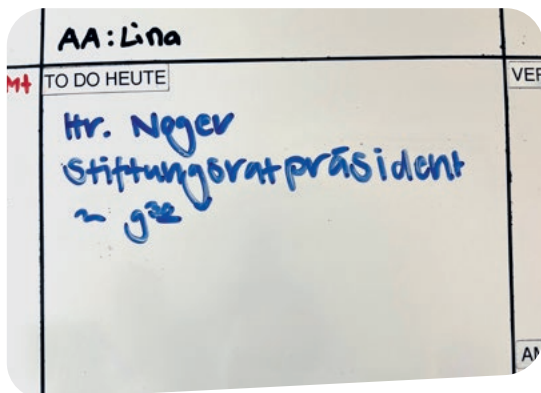 AA: Lina
M+
TO DO HEUTE
VER
Hr. Noger
Stiftungsratpräsident
~ 9³⁰
AN